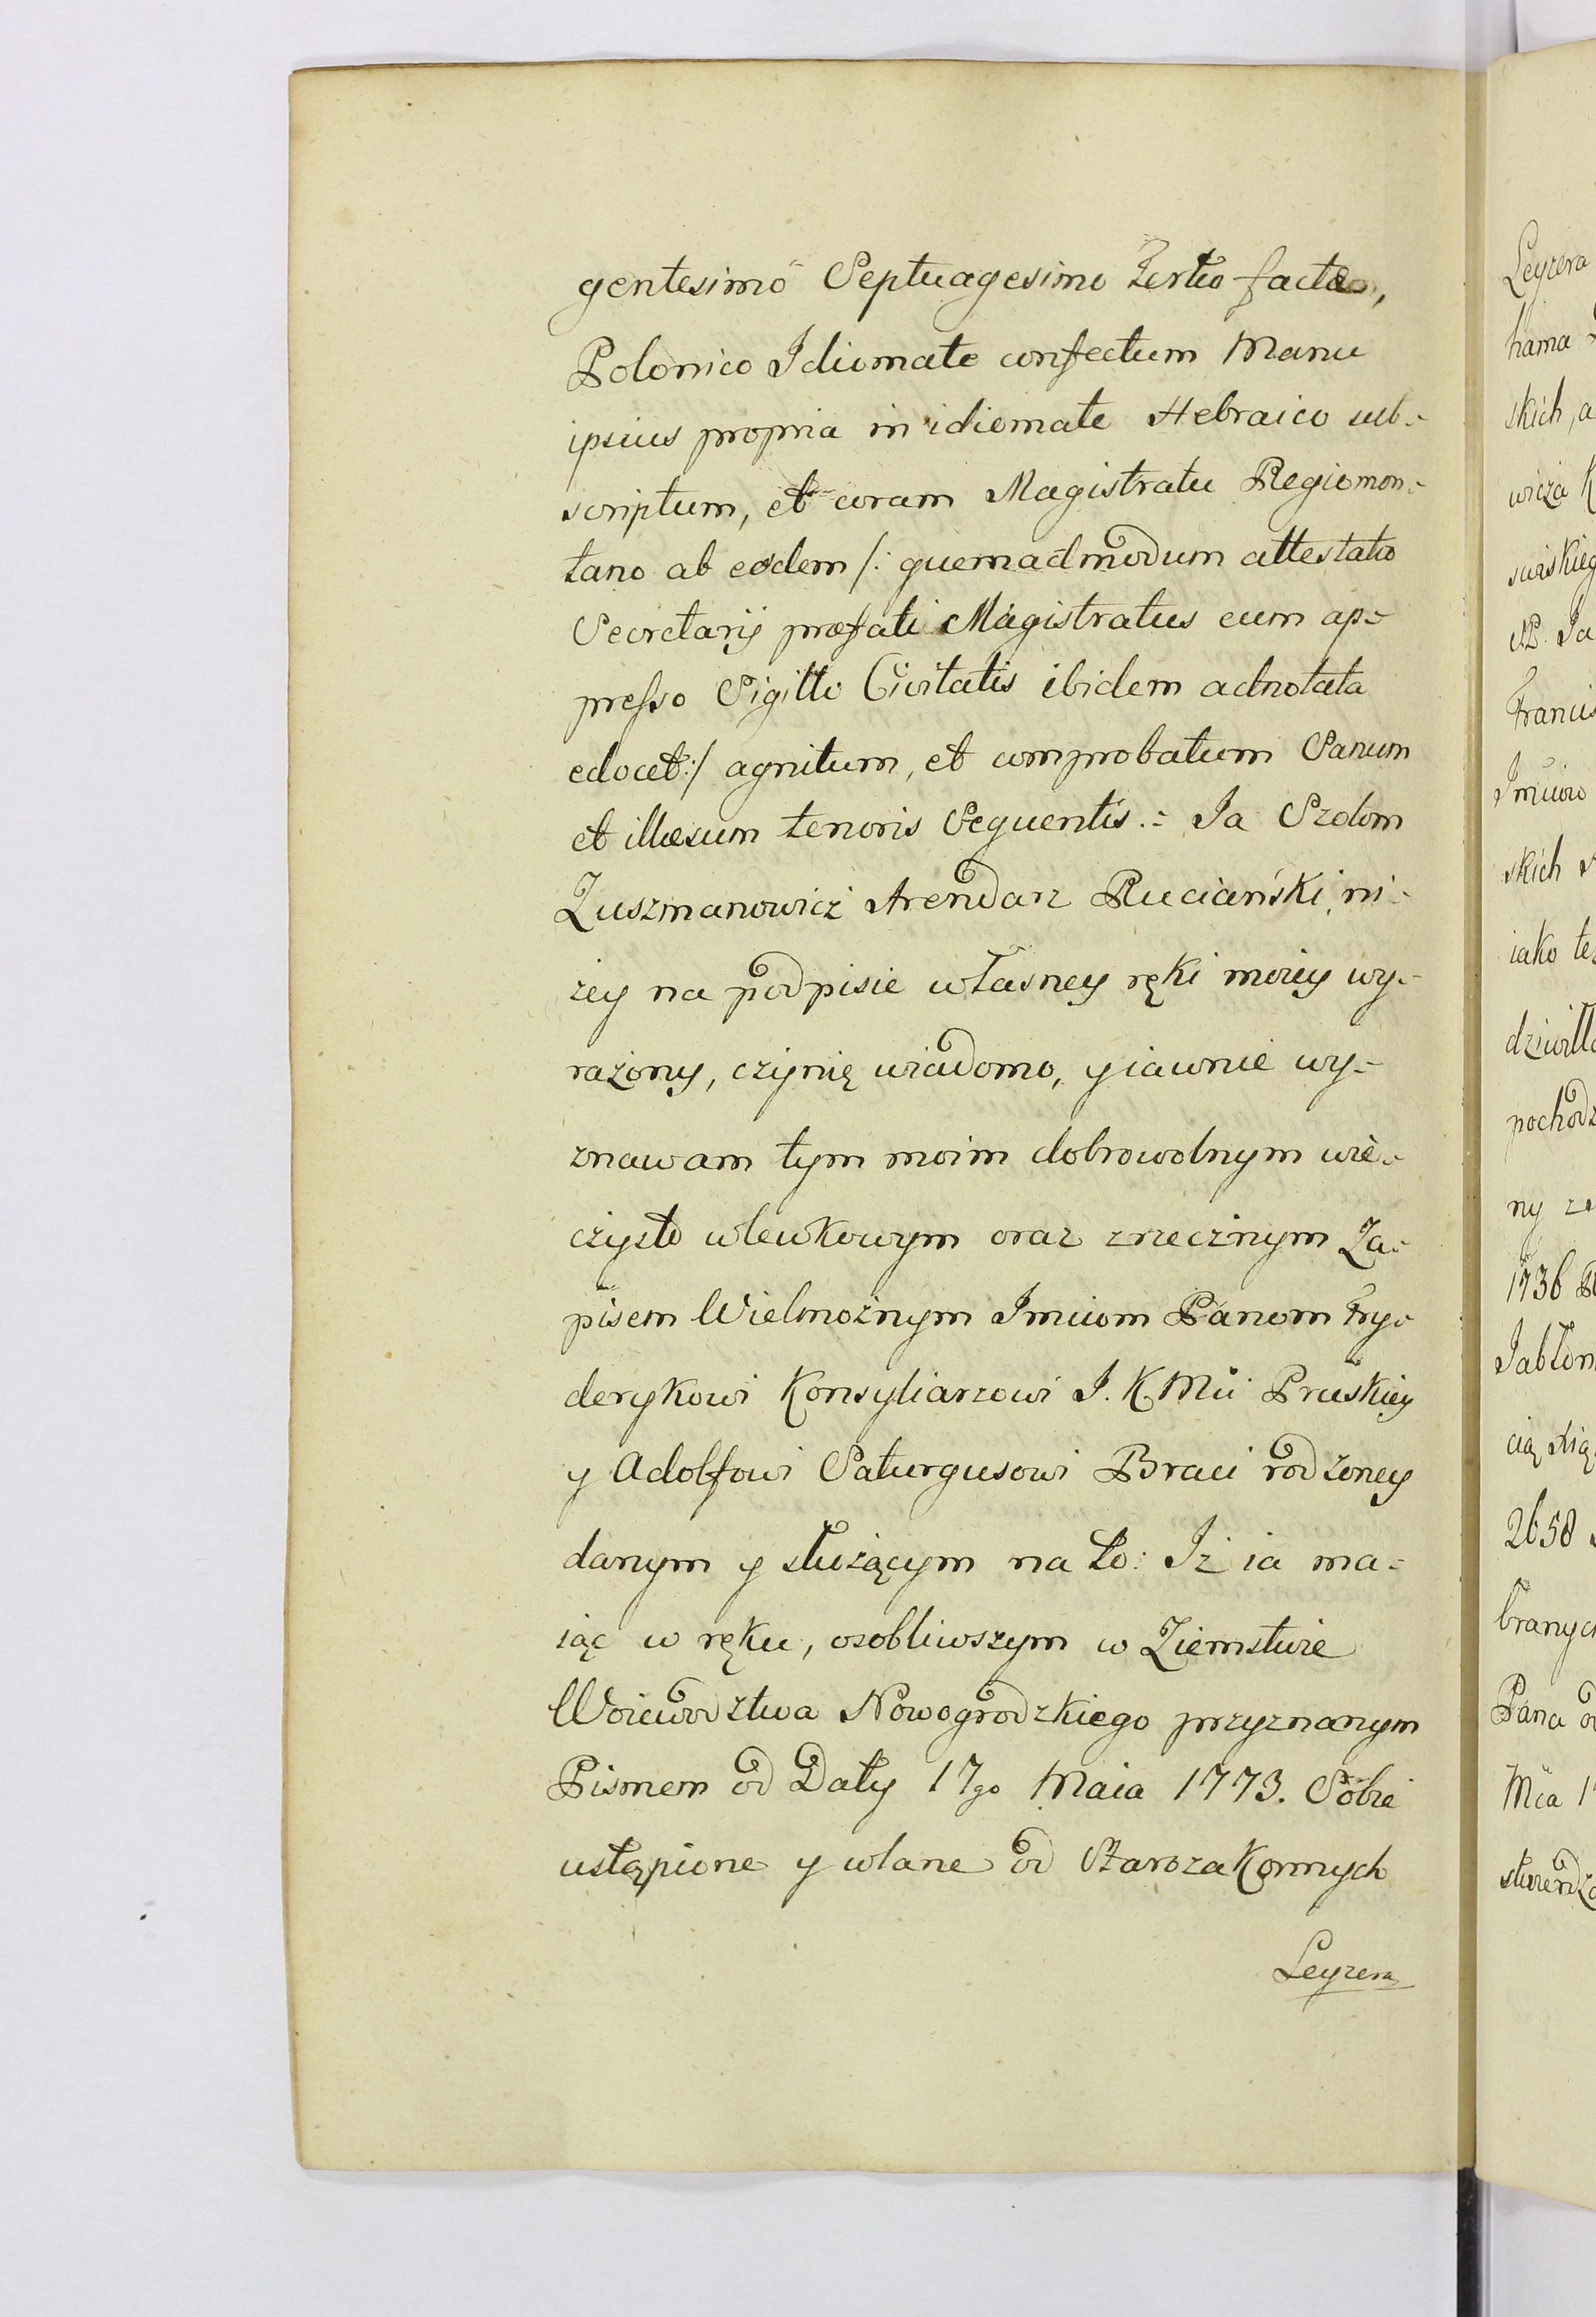 gentesimo Septuagesimo Tertio facta,
Polonico Idiomate confectum Manu
ipsius propria in idiomate Hebraico sub=
scriptum, et coram Magistratu Regiomon=
tano ab eodem /: quemadmodum attestatio
Secretarij præfati Magistratus cum ap=
presso Sigillo Civitatis ibidem adnotata
edocet :/ agnitum, et comprobatum Sanum
et illæsum tenoris Sequentis.= Ja Szolom
Zuszmanowicz Arendarz Ruciański, ni=
zey na podpisie własney ręki moiey wy=
rażony, czynię wiadomo, y iawnie wy=
znawam tym moim dobrowolnym wie=
czysto wlewkowym oraz zrzecznym Za=
pisem Wielmożnym Imciom Panom Fry=
derykowi Konsyliarzowi J. K. Mci Pruskiey
y Adolfowi Saturgusowi Braci rodzoney
danym y służącym na to: Iż ia ma=
iąc w ręku, osobliwszym w Ziemstwie
Woiewodztwa Nowogrodzkiego przyznanym
Pismem od Daty 17go Maia 1773. Sobie
ustąpione y wlane od Starozakonnych
Leyzera
Leyzera
hama
skich, a
wicza K
swiskieg
N. Ja
Francis
Imciow
skich
iako te
dziwiłło
pochodz
ny
1736
Jabłon
cią
2658
branych
Pana od
Mca 1